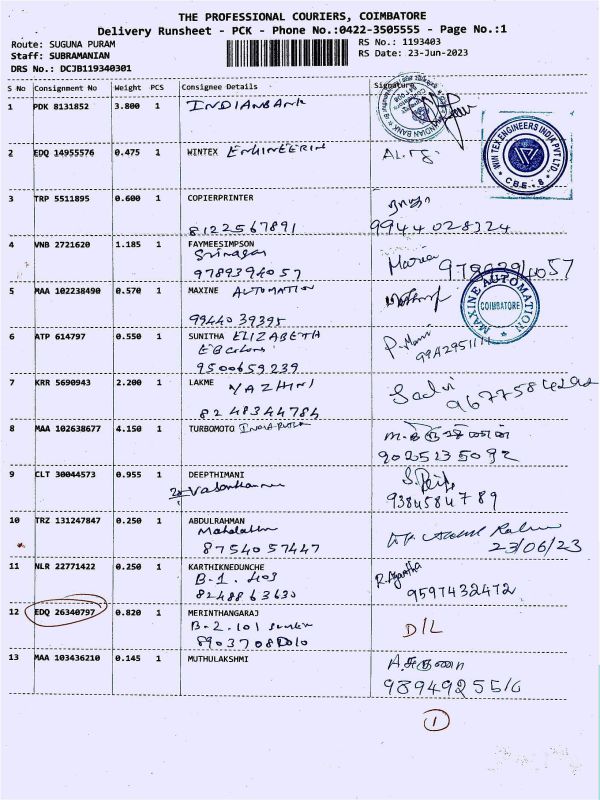 THE PROFESSIONAL COURIERS, COIMBATORE
Delivery Runsheet - PCK - Phone No.:0422-3505555 - Page No.:1
Route: SUGUNA PURAM
RS No.: 1193403
Staff: SUBRAMANIAN
RS Date: 23-Jun-2023
DRS No.: DCJB119340301
S No Consignment No Weight PCS Consignee Details Signature
1 PDK 8131852 3.800 1 INDIANBANK
2 EDQ 14955576 0.475 1 WINTEX
WIN TEX ENGINEERS INDIA PVT LTD.,
CBE - 8
3 TRP 5511895 0.600 1 COPIERPRINTER
8122567891 9944028324
4 VNB 2721620 1.185 1 FAYMEESIMPSON Maria
Srinagar
9789394057
5 MAA 102238490 0.570 1 MAXINE AUTOMATION
MAXINE AUTOMATION
COIMBATORE
9944039395
6 ATP 614797 0.550 1 SUNITHA ELIZABETH
P. Mani
9500659239
7 KRR 5690943 2.200 1 LAKME YAZHINI
8248344784 9677584292
8 MAA 102638677 4.150 1 TURBOMOTO
9025235092
9 CLT 30044573 0.955 1 DEEPTHIMANI
9384584789
10 TRZ 131247847 0.250 1 ABDULRAHMAN
8754057447 23/06/23
11 NLR 22771422 0.250 1 KARTHIKNEDUNCHE
B-1. 403
8248863630 9597432472
12 EDQ 26340797 0.820 1 MERINTHANGARAJ
B-2. 101 D/L
13 MAA 103436210 0.145 1 MUTHULAKSHMI A. அருணா
9894925516
1